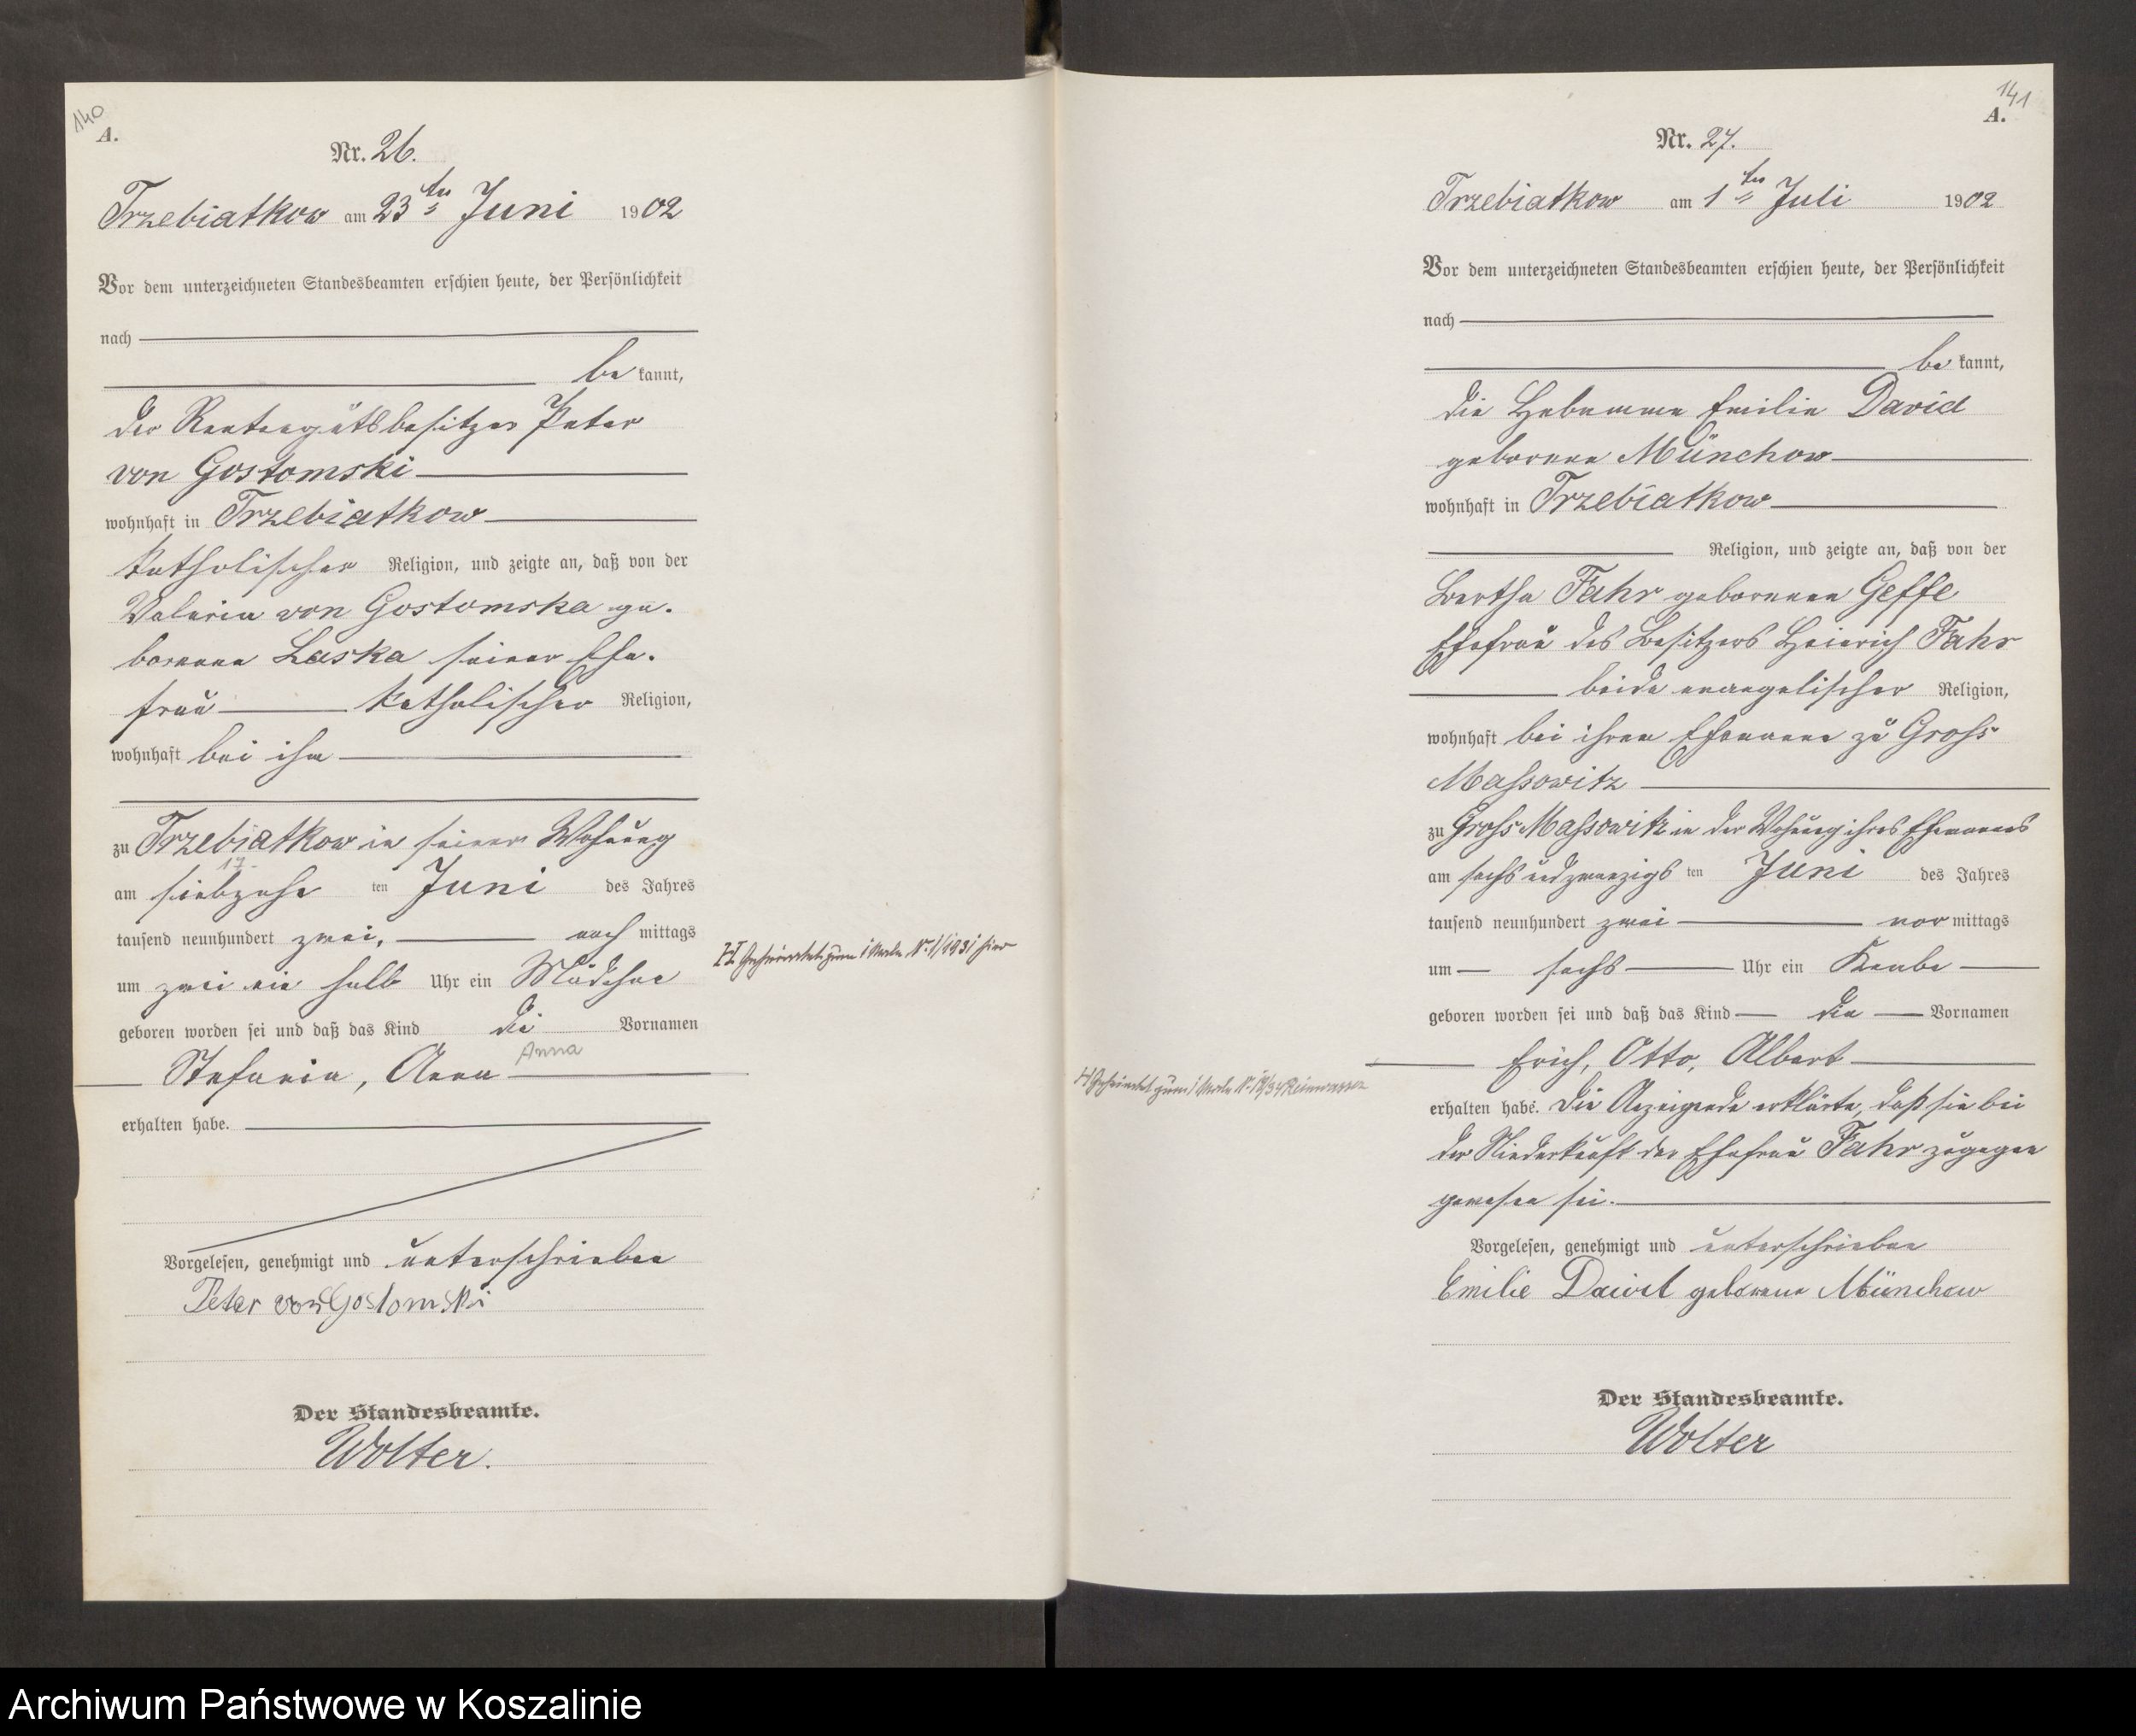 140
A.
Nr. 26.
Trzebiatkow am 23ten Juni 1902
Vor dem unterzeichneten Standesbeamten erschien heute, der Persönlichkeit
nach
be kannt,
der Rentengutsbesitzer Peter
von Gostomski
wohnhaft in Trzebiatkow
katholischer Religion, und zeigte an, daß von der
Valeria von Gostomska ge-
borenen Laska seiner Ehe-
frau katholischer Religion,
wohnhaft bei ihm
zu Trzebiatkow in seiner Wohnung
17.
am siebzehn ten Juni des Jahres
tausend neunhundert zwei, nach mittags
um zwei ein halb Uhr ein Mädchen
geboren worden sei und daß das Kind die Vornamen
Anna
Stefania, Anna
erhalten habe.
Vorgelesen, genehmigt und unterschrieben
Peter von Gostomski
Der Standesbeamte.
Wolter.
Geheiratet zum 1 Male Nr. 1/1931 hier
141
A.
Nr. 27.
Trzebiatkow am 1ten Juli 1902
Vor dem unterzeichneten Standesbeamten erschien heute, der Persönlichkeit
nach
be kannt,
die Hebamme Emilie David
geborene Münchow
wohnhaft in Trzebiatkow
Religion, und zeigte an, daß von der
Bertha Fahr geborenen Geffe
Ehefrau des Besitzers Heinrich Fahr
beide evangelischer Religion,
wohnhaft bei ihrem Ehemanne zu Gross
Massowitz
zu Gross Massowitz in der Wohnung ihres Ehemannes
am sechs und zwanzigs ten Juni des Jahres
tausend neunhundert zwei vor mittags
um sechs Uhr ein Knabe
geboren worden sei und daß das Kind die Vornamen
Erich, Otto, Albert
erhalten habe. Die Anzeigende erklärte, daß sie bei
der Niederkunft der Ehefrau Fahr zugegen
gewesen sei.
Vorgelesen, genehmigt und unterschrieben
Emilie David geborene Münchow
Der Standesbeamte.
Wolter
Geheiratet zum 1 Male Reinwasser
Archiwum Państwowe w Koszalinie